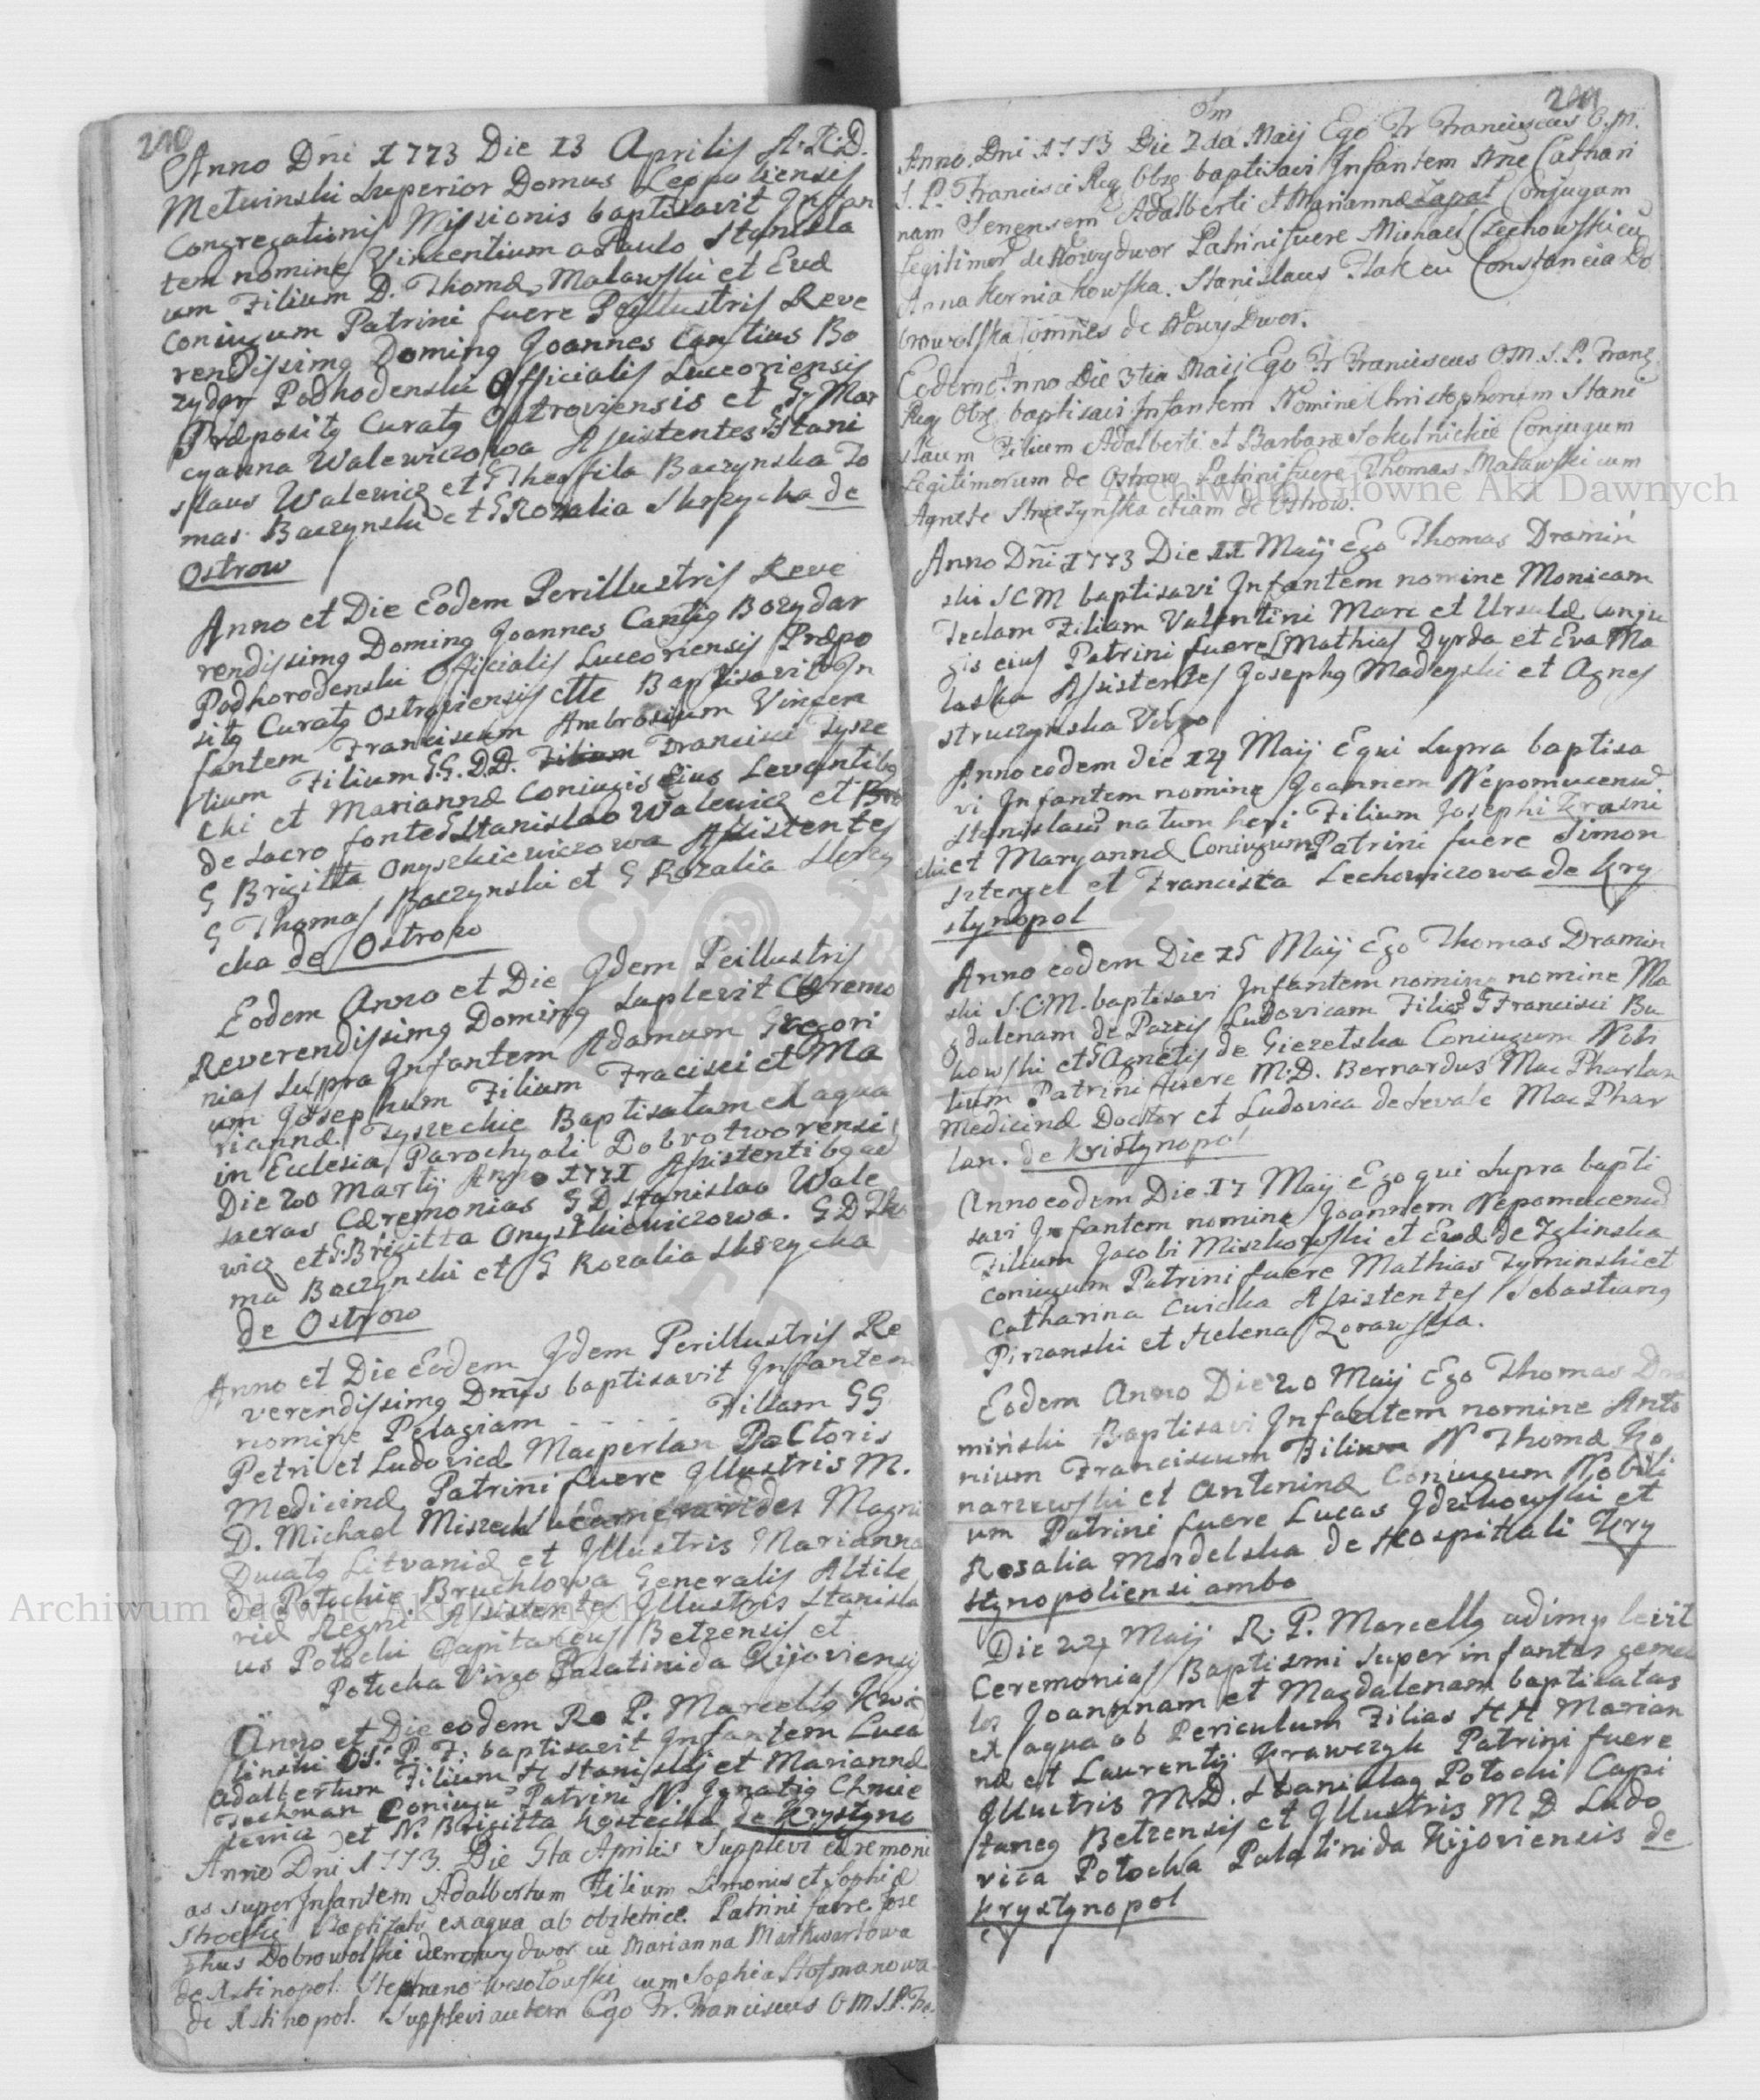 210
Anno Dni 1773 Die 13 Aprilis A. R. D.
Metwinski Superior Domus Leopoliensis
Congregationis Missionis baptisavit Infan
tem nomine Vincentium a Paulo Stanisla
um Filium D. Thomæ Malawski et Evæ
Coniugum Patrini fuere Perillustris Reve
rendissimg Doming Joannes Cantius Bo
zydar Podhodenski Officialis Luceoriensis
Præpositg Curatg Ostroviensis et G Mar
cyanna Walewiczowa Assistentes G Stani
slaus Walewicz et G Theofila Baczynska Tho
mas Baczynski et G Rozalia Skrzycka de
Ostrow
Anno et Die Eodem Perillustris Reve
rendissimg Doming Joannes Cantig Bozydar
Podhorodenski Officialis Luceoriensis Præpo
sitg Curatg Ostroviensis Baptisavit In
fantem Franciscum Ambrosium Vincen
tium Filium G.G. D.D. Francisci Tysze
cki et Mariannæ Coniugis Eius Levantibg
de sacro fonte G Stanislao Walewicz et
G Brigitta Onyszkiewiczowa Assistentes
G Thomas Baczynski et G Rozalia Skrzy
cka de Ostrow
Eodem Anno et Die Idem Peillustris
Reverendissimg Doming suplevit Cæremo
nias supra Infantem Adamum Gregori
um Josephum Filium Fracisci et Ma
riannæ Tyszeckie Baptisatum ex aqua
in Ecclesia Parochyali Dobrotworensi
Die 20 Martij Anno 1771 Assistentibg ad
sacras Cæremonias G D Stanislao Wale
wicz et G Brigitta Onyszkiewiczowa. G D Tho
ma Baczynski et G Rozalia Skrzycka
de Ostrow
Anno et Die Eodem Idem Perillustris Re
verendissimg Dnus baptisavit Infantem
nomine Pelagiam . . . . . Filiam GG
Petri et Ludovicæ Macperlan Doctoris
Medicinæ Patrini fuere Illustris M.
D. Michael Miszech Magni
Ducatg Litvaniæ et Illustris Marianna
de Potockie Bruchlowa Generalis Altile
riæ Regni Assistentes Illustris Stanisla
us Potocki Capitaneus Betzensis et
Potocka Virgo Palatinida Kijoviensis
Anno et Die eodem R. P. Marcellg Kwic
linski O.S. P. F. baptisavit Infantem Luca
Adalbertum Filium H Stanislaj et Mariannæ
Tuchman Coniugu Patrini N. Ignatig Chmie
lewicz et N. Brigitta Kostecka de Krystyno
Anno Dni 1773. Die 6ta Aprilis Supplevi cæremoni
as super Infantem Adalbertum Filium Simonis et Sophiæ
Skocki Baptizatu ex aqua ab obstetrice. Patrini fuere Jose
phus Dobrowolski de nowy dwor cu Marianna Markwartowa
de Kstinopol. Stephano Wesołowski cum Sophia Hofmanowa
de Kstinopol. Supplevi autem Ego Fr. Franciscus O M.S.P. Fr.
211
Anno Dni 1773 Die 2da Maij Ego Fr Franciscus O.M.
S. P. Francisci Reg Obs baptisavi Infantem Nne Cathari
nam Senensem Adalberti et Mariannæ Zapał Conjugum
legitimor de Nowydwor Patrini fuere Michael Czechowski cu
Anna Korniakowska. Stanislaus Ptak cu Constancia Do
browolska omnes de Nowy Dwor.
Eodem Anno Die 3tia Maij Ego Fr Franciscus O M. S. P. Franc
Reg Obs baptisavi Infantem Nomine Christophorum Stani
slaum Filium Adalberti et Barbaræ Sokolnickie Conjugum
Legitimorum de Ostrow Patrini fuere Thomas Malawski cum
Agnete Strężynska etiam de Ostrow.
Anno Dni 1773 Die 11 Maij Ego Thomas Dramiń
ski S C M baptisavi Infantem nomine Monicam
Teclam Filiam Valentini Marc et Ursulæ Conju
gis eius Patrini fuere Mathias Dyrda et Eva Ma
laska Assistentes Josephg Madeyski et Agnes
struczynska Virgo
Anno eodem die 14 Maij Ego qui supra baptisa
vi Infantem nomine Joannem Nepomucenu
Stanislau natum heri Filium Josephi Krasni
cki et Maryannæ Coniugum Patrini fuere Simon
Sztengel et Francisca Lechowiczowa de Kry
stynopol
Anno eodem Die 15 Maij Ego Thomas Dramin
ski S.C.M. baptisavi Infantem nomine nomine Ma
gdalenam de Pazzis Ludovicam Filia G Francisci Bu
kowski et G Agnetis de Giezelska Coniugum Nobi
lium Patrini fuere M.D. Bernardus Mac Pharlan
Medicinæ Doctor et Ludovica de Levale Mac Phar
lan. de Kristynopol
Anno eodem Die 17 Maij Ego qui supra bapti
savi Infantem nomine Joannem Nepomucenu
Filium Jacobi Miszkowski et Evæ de Zglinska
Coniugum Patrini fuere Mathias Tyminski et
Catharina Cwicka Assistentes Sebastiang
Pirzanski et Helena Zorawska.
Eodem Anno Die 20 Maij Ego Thomas Dra
miński Baptisavi Infantem nomine Anto
nium Franciscum Filium N Thomæ Ko
narzewski et Antoninæ Coniugum Nobili
um Patrini fuere Lucas Idzikowski et
Rosalia Mordelska de Hospittali Kry
stynopoliensi ambo
Die 24 Maij R. P. Marcellg adimplevit
Ceremonias Baptismi super infantes geme
los Joannam et Magdalenam baptisatas
ex aqua ob Periculum Filias H H Marian
næ et Laurentij Krawczyk Patrini fuere
Illustris M.D. Stanislag Potocki Capi
taneg Betzensis et Illustris M D Ludo
vica Potocka Palatinida Kijoviensis de
Krystynopol
Archiwum Główne Akt Dawnych
Archiwum Główne Akt Dawnych